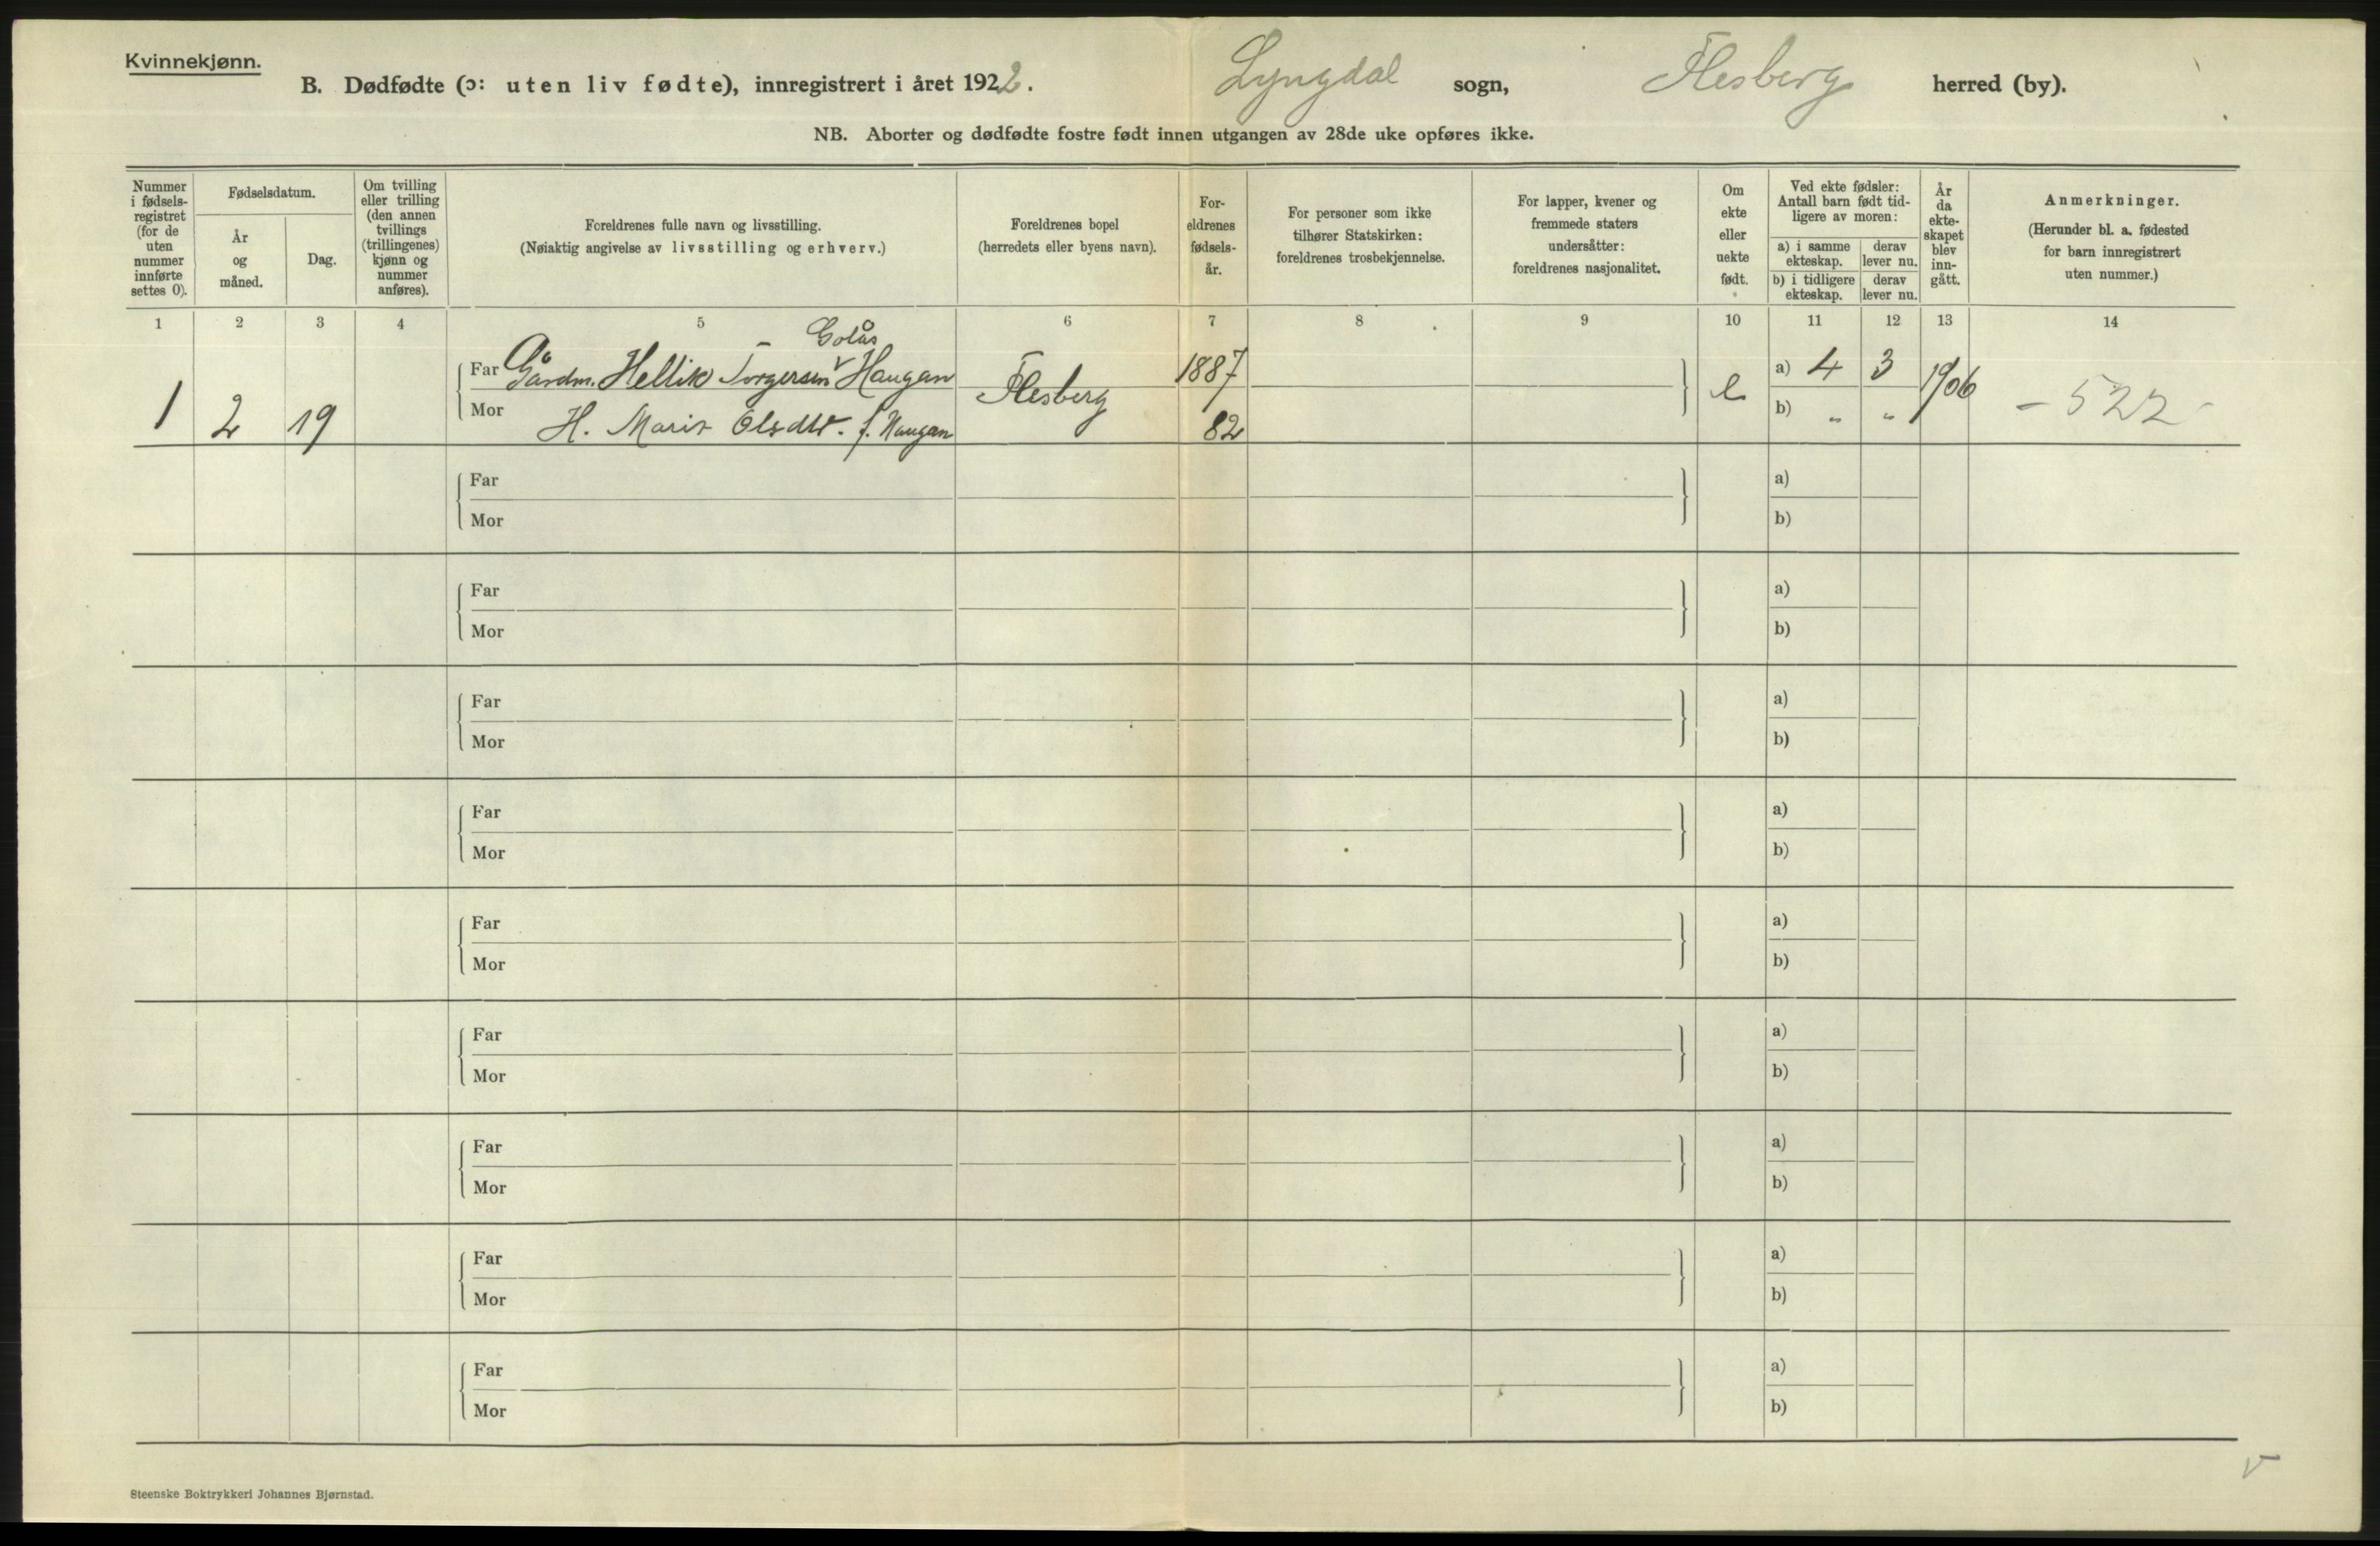 Kvinnekjønn.
B. Dødfødte (ɔ: uten liv fødte), innregistrert i året 1922. Lyngdal sogn, Flesberg herred (by).
NB. Aborter og dødfødte fostre født innen utgangen av 28de uke opføres ikke.
Nummer i fødsels-registret (for de uten nummer innførte settes 0).
Fødselsdatum.
År og måned.
Dag.
Om tvilling eller trilling (den annen tvillings (trillingenes) kjønn og nummer anføres).
Foreldrenes fulle navn og livsstilling.
(Nøiaktig angivelse av livsstilling og erhverv.)
Foreldrenes bopel
(herredets eller byens navn).
For-eldrenes fødsels-år.
For personer som ikke tilhører Statskirken: foreldrenes trosbekjennelse.
For lapper, kvener og fremmede staters undersåtter: foreldrenes nasjonalitet.
Om ekte eller uekte født.
Ved ekte fødsler: Antall barn født tid-ligere av moren:
a) i samme ekteskap.
derav lever nu.
b) i tidligere ekteskap.
derav lever nu.
År da ekte-skapet blev inn-gått.
Anmerkninger.
(Herunder bl. a. fødested for barn innregistrert uten nummer.)
1 2 3 4 5 6 7 8 9 10 11 12 13 14
Golås
Far Gårdm. Hellik Torgersen Haugan Flesberg 1887 e a) 4 3 1906
1 2 19 Mor H. Marit Olsdtr. f. Haugan 82 b) " " - 522 -
Far a)
Mor b)
Far a)
Mor b)
Far a)
Mor b)
Far a)
Mor b)
Far a)
Mor b)
Far a)
Mor b)
Far a)
Mor b)
Far a)
Mor b)
Far a)
Mor b)
v
Steenske Boktrykkeri Johannes Bjørnstad.